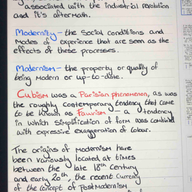 associated with the industrial revolution
and it's aftermath.
Modernity - the social conditions and
modes of experience that are seen as the
effects of these processes.
Modernism - the property or quality of
being modern or up-to-date.
Cubism was a Parisian phenomenon, as was
the roughly contemporary tendency that came
to be known as Fauvism - a tendency
in which simplification of form was combined
with expressive exaggeration of colour.
The origins of Modernism have
been variously located at times
between the late 18th century
and early 20th, the recent currency
of the concept of Postmodernism